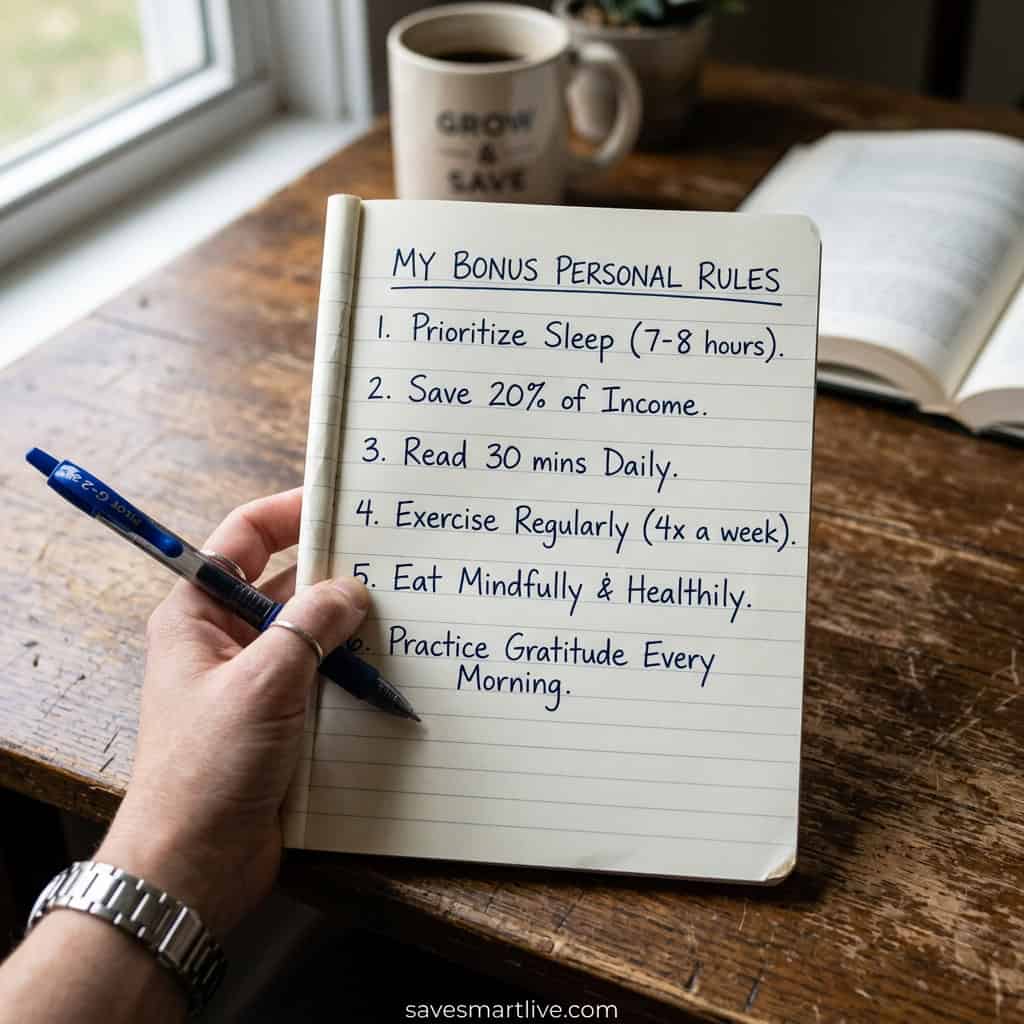 GROW
&
SAVE
MY BONUS PERSONAL RULES
1. Prioritize Sleep (7-8 hours).
2. Save 20% of Income.
3. Read 30 mins Daily.
4. Exercise Regularly (4x a week).
5. Eat Mindfully & Healthily.
6. Practice Gratitude Every
Morning.
PILOT G-2
savesmartlive.com